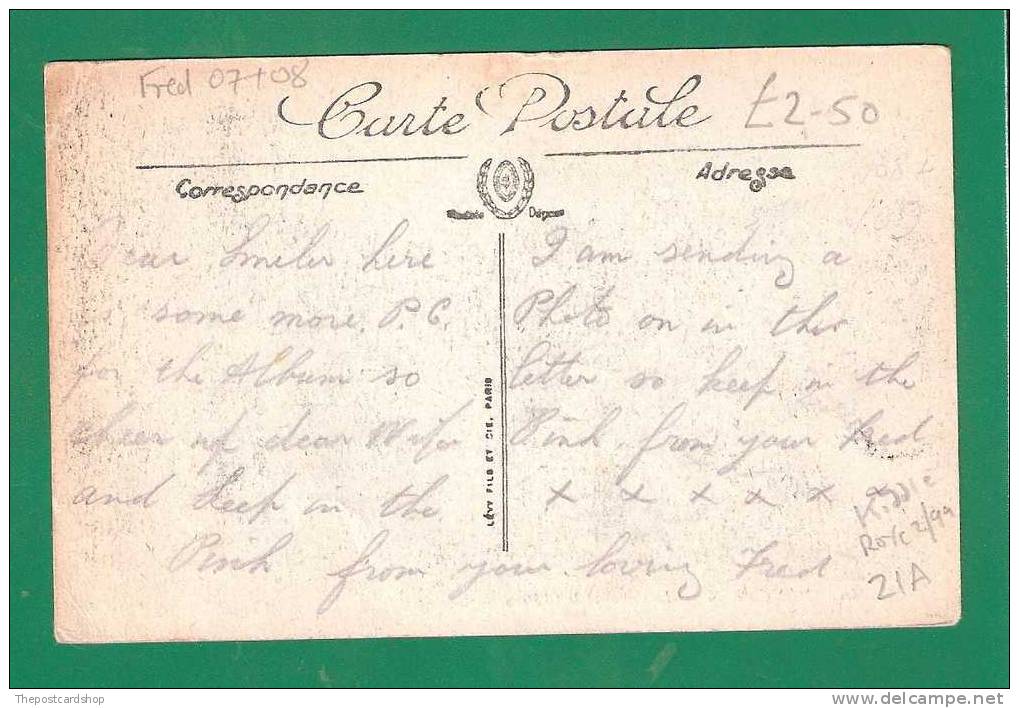 Fred 07+08
Carte Postale
£2-50
Correspondance
Adresse
Dear Smiler here
is some more P.C.
for the Album so
cheer up dear Wife
and keep in the
Pink from your loving Fred
LÉVY FILS ET CIE, PARIS
I am sending a
Photo on in this
letter so keep in the
Pink from your Fred
x x x x x x
21A
Thepostcardshop
www.delcampe.net